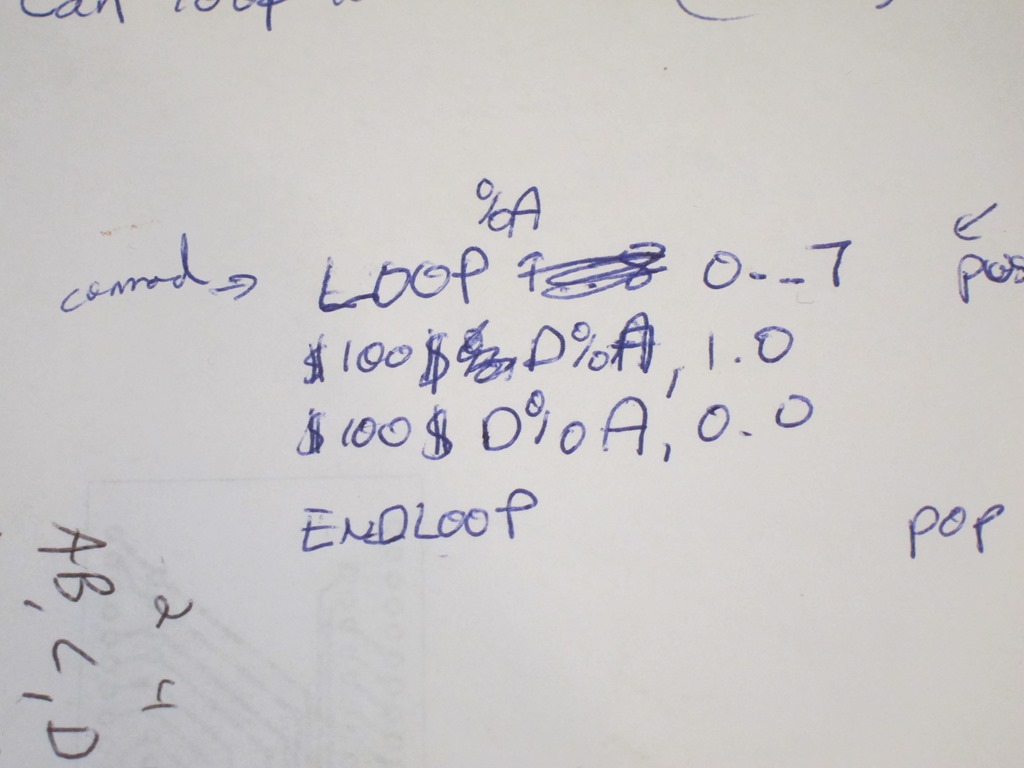 can loop
%A
comnad → LOOP 0--7
$100$ D%A, 1.0
$100$ D%A, 0.0
ENDLOOP pop
AB, C, D
2 4